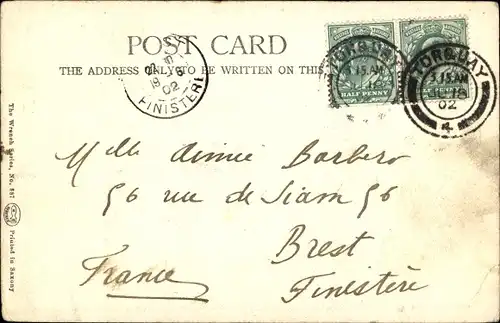 POST CARD
THE ADDRESS ONLY TO BE WRITTEN ON THIS
HALF PENNY
TOR & BAY
5.15AM
02
4
FINISTERE
02
Melle Aimée Barbero
56 rue de Siam 56
Brest
France
Finistère
The Wrench Series, No. 887
Printed in Saxony